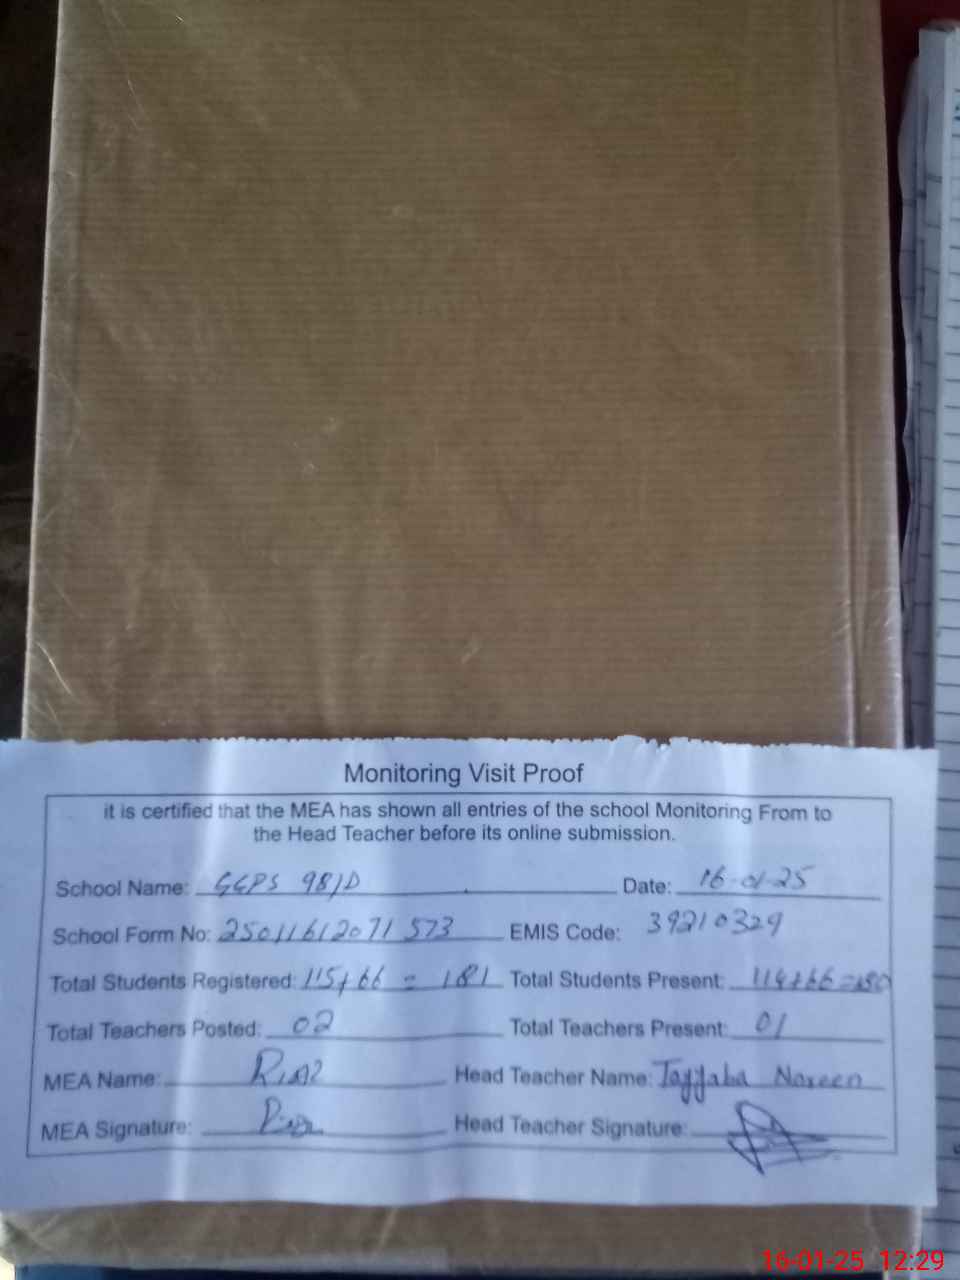 Monitoring Visit Proof
it is certified that the MEA has shown all entries of the school Monitoring From to
the Head Teacher before its online submission.
School Name: GGPS 98/D Date: 16-01-25
School Form No: 25011612071573 EMIS Code: 39210329
Total Students Registered: 115+66 = 181 Total Students Present: 114+66=180
Total Teachers Posted: 02 Total Teachers Present: 01
MEA Name: Riaz Head Teacher Name: Tayyaba Noreen
MEA Signature: Head Teacher Signature:
16-01-25 12:29